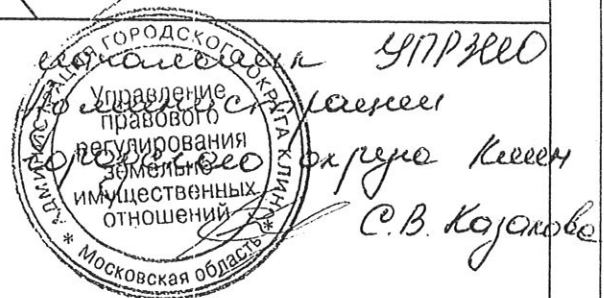 начальник УПРЗИО
администрации
городского округа Клин
С.В. Казакова
АДМИНИСТРАЦИЯ ГОРОДСКОГО ОКРУГА КЛИН
* Московская область *
Управление
правового
регулирования
земельно-
имущественных
отношений